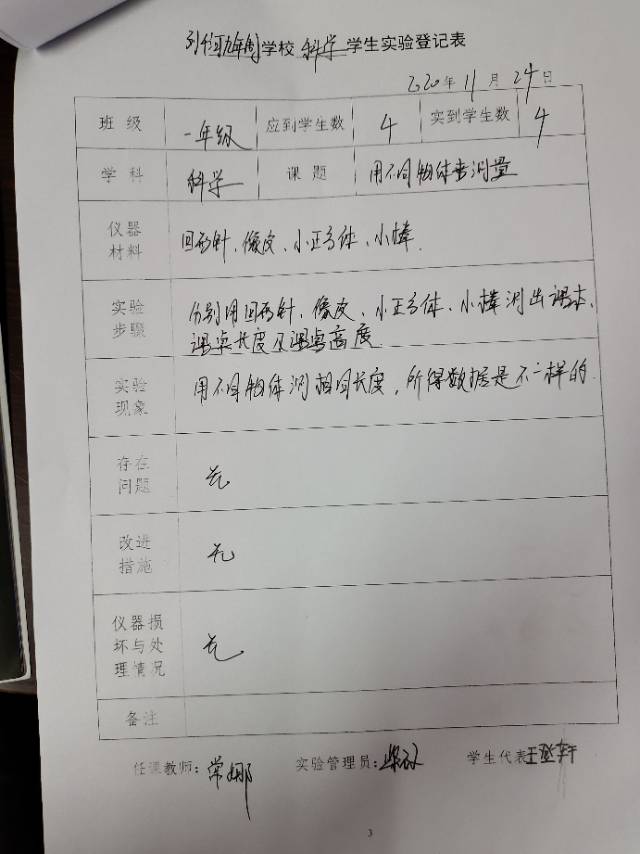 九年制学校 科学 学生实验登记表
2020年11月24日
班级 一年级 应到学生数 4 实到学生数 4
学科 科学 课题 用不同物体来测量
仪器材料 回形针、橡皮、小正方体、小棒.
实验步骤 分别用回形针、橡皮、小正方体、小棒测出课本、
课桌长度及课桌高度
实验现象 用不同物体测相同长度，所得数据是不一样的.
存在问题 无
改进措施 无
仪器损坏与处理情况 无
备注
任课教师：常娜 实验管理员： 学生代表
3